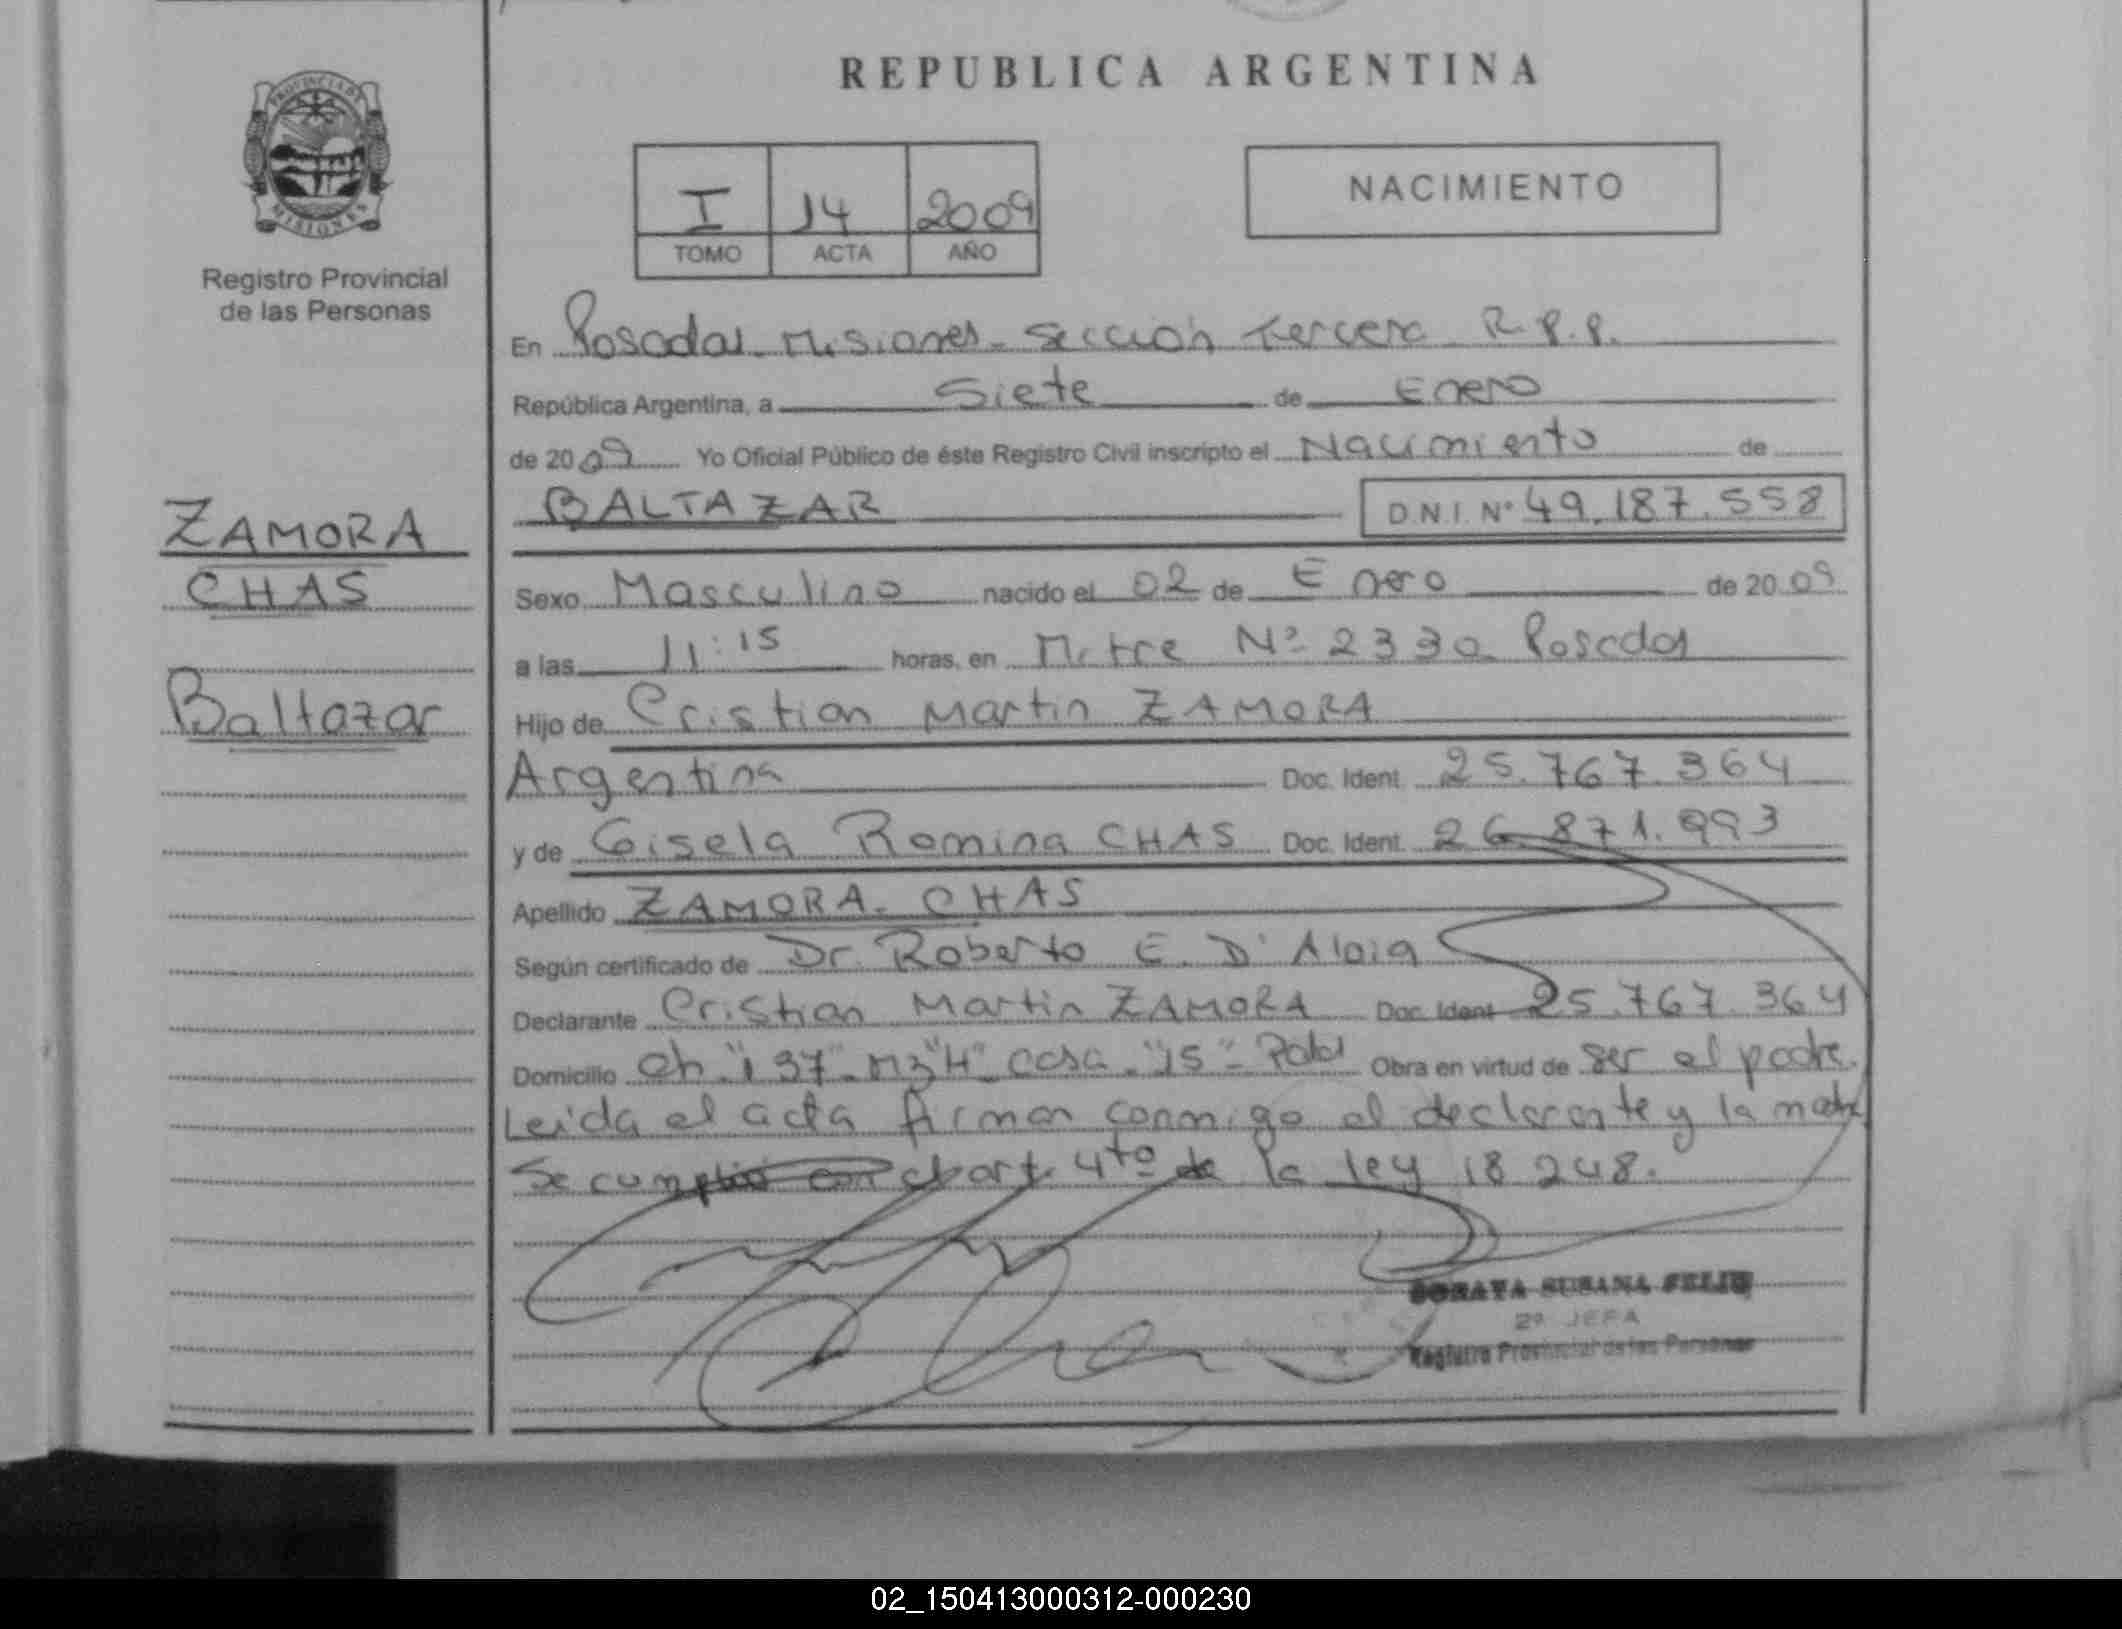 REPUBLICA ARGENTINA
PROVINCIA DE
MISIONES
Registro Provincial
de las Personas
I 14 2009
TOMO ACTA AÑO
NACIMIENTO
ZAMORA
CHAS
Baltazar
En Posadas Misiones - Sección tercera R.P.P.
República Argentina, a Siete de Enero
de 2009 Yo Oficial Público de éste Registro Civil inscripto el Nacimiento de
BALTAZAR D.N.I. Nº 49.187.558
Sexo Masculino nacido el 02 de Enero de 2009
a las 11:15 horas, en Mitre Nº 2330 Posadas
Hijo de Cristian Martin ZAMORA
Argentina Doc. Ident. 25.767.364
y de Gisela Romina CHAS Doc. Ident. 26.871.993
Apellido ZAMORA - CHAS
Según certificado de Dr. Roberto E. D'Aloia
Declarante Cristian Martin ZAMORA Doc. Ident 25.767.364
Domicilio Ch "137" Mz "H" casa "15" - Obra en virtud de ser el padre.
Leida el acta firman conmigo el declarante y la madre
Se cumplió con el art. 4to de la ley 18248.
SORAYA SUSANA FELIU
2º JEFA
Registro Provincial de las Personas
02_150413000312-000230